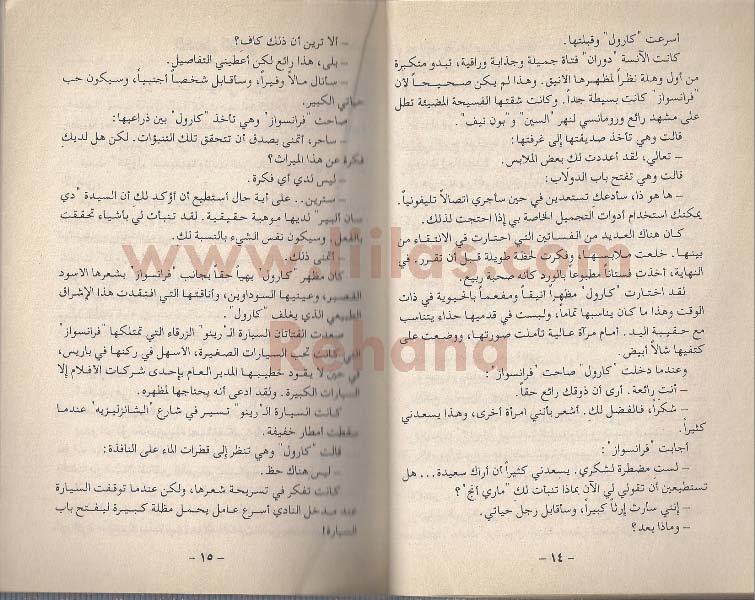 أسرعت "كارول" وقبلتها.
كانت الآنسة "دوران" فتاة جميلة وجذابة وراقية، تبدو متكبرة
من أول وهلة نظراً لمظهرها الأنيق. وهذا لم يكن صحيحاً لأن
"فرانسواز" كانت بسيطة جداً. وكانت شقتها الفسيحة المضيئة تطل
على مشهد رائع ورومانسي لنهر "السين" و"بون نيف".
قالت وهي تأخذ صديقتها إلى غرفتها:
– تعالي، لقد أعددت لك بعض الملابس.
قالت وهي تفتح باب الدولاب:
– ها هو ذا، سأدعك تستعدين في حين سأجري اتصالاً تليفونياً.
يمكنك استخدام أدوات التجميل الخاصة بي إذا احتجت لذلك.
كان هناك العديد من الفساتين التي احتارت في الانتقاء من
بينها. خلعت ملابسها، وفكرت لحظة طويلة قبل أن تقرر. في
النهاية، أخذت فستاناً مطبوعاً بالورد كأنه صحبة ربيع.
لقد اختارت "كارول" مظهراً أنيقاً ومفعماً بالحيوية في ذات
الوقت وهذا ما كان يناسبها تماماً، ولبست في قدميها حذاء يتناسب
مع حقيبة اليد. أمام مرآة عالية تأملت صورتها، ووضعت على
كتفيها شالاً أبيض.
وعندما دخلت "كارول" صاحت "فرانسواز":
– أنت رائعة. أرى أن ذوقك رائع حقاً.
– شكراً، فالفضل لك. أشعر بأنني امرأة أخرى، وهذا يسعدني
كثيراً.
أجابت "فرانسواز":
– لست مضطرة لشكري. يسعدني كثيراً أن أراك سعيدة... هل
تستطيعين أن تقولي لي الآن بماذا تنبأت لك "ماري آنج"؟
– إنني سأرث إرثاً كبيراً، وسأقابل رجل حياتي.
– وماذا بعد؟
– ١٤ –
– ألا ترين أن ذلك كافٍ؟
– بلى، هذا رائع لكن أعطيني التفاصيل.
– سأنال مالاً وفيراً، وسأقابل شخصاً أجنبياً، وسيكون حب
حياتي الكبير.
صاحت "فرانسواز" وهي تأخذ "كارول" بين ذراعيها:
– ساحر، أتمنى بصدق أن تتحقق تلك التنبؤات. لكن هل لديك
فكرة عن هذا الميراث؟
– ليس لدي أي فكرة.
– سترين.. على أية حال أستطيع أن أؤكد لك أن السيدة "دي
سان البير" لديها موهبة حقيقية. لقد تنبأت لي بأشياء تحققت
بالفعل. وسيكون نفس الشيء بالنسبة لك.
– أتمنى ذلك.
كان مظهر "كارول" بهياً حقاً بجانب "فرانسواز" بشعرها الأسود
القصير، وعينيها السوداوين، وأناقتها التي افتقدت هذا الإشراق
الطبيعي الذي يغلف "كارول".
صعدت الفتاتان السيارة الـ"رينو" الزرقاء التي تمتلكها "فرانسواز"
التي كانت تحب السيارات الصغيرة، الأسهل في ركنها في باريس،
في حين لا يقود خطيبها المدير العام بإحدى شركات الأفلام إلا
السيارات الكبيرة. ولقد ادعى أنه يحتاجها لمظهره.
كانت السيارة الـ"رينو" تسير في شارع "الشانزليزيه" عندما
سقطت أمطار خفيفة.
قالت "كارول" وهي تنظر إلى قطرات الماء على النافذة:
– ليس هناك حظ.
كانت تفكر في تسريحة شعرها، ولكن عندما توقفت السيارة
عند مدخل النادي أسرع عامل يحمل مظلة كبيرة ليفتح باب
السيارة!
– ١٥ –
www.liilas.com
Rehana